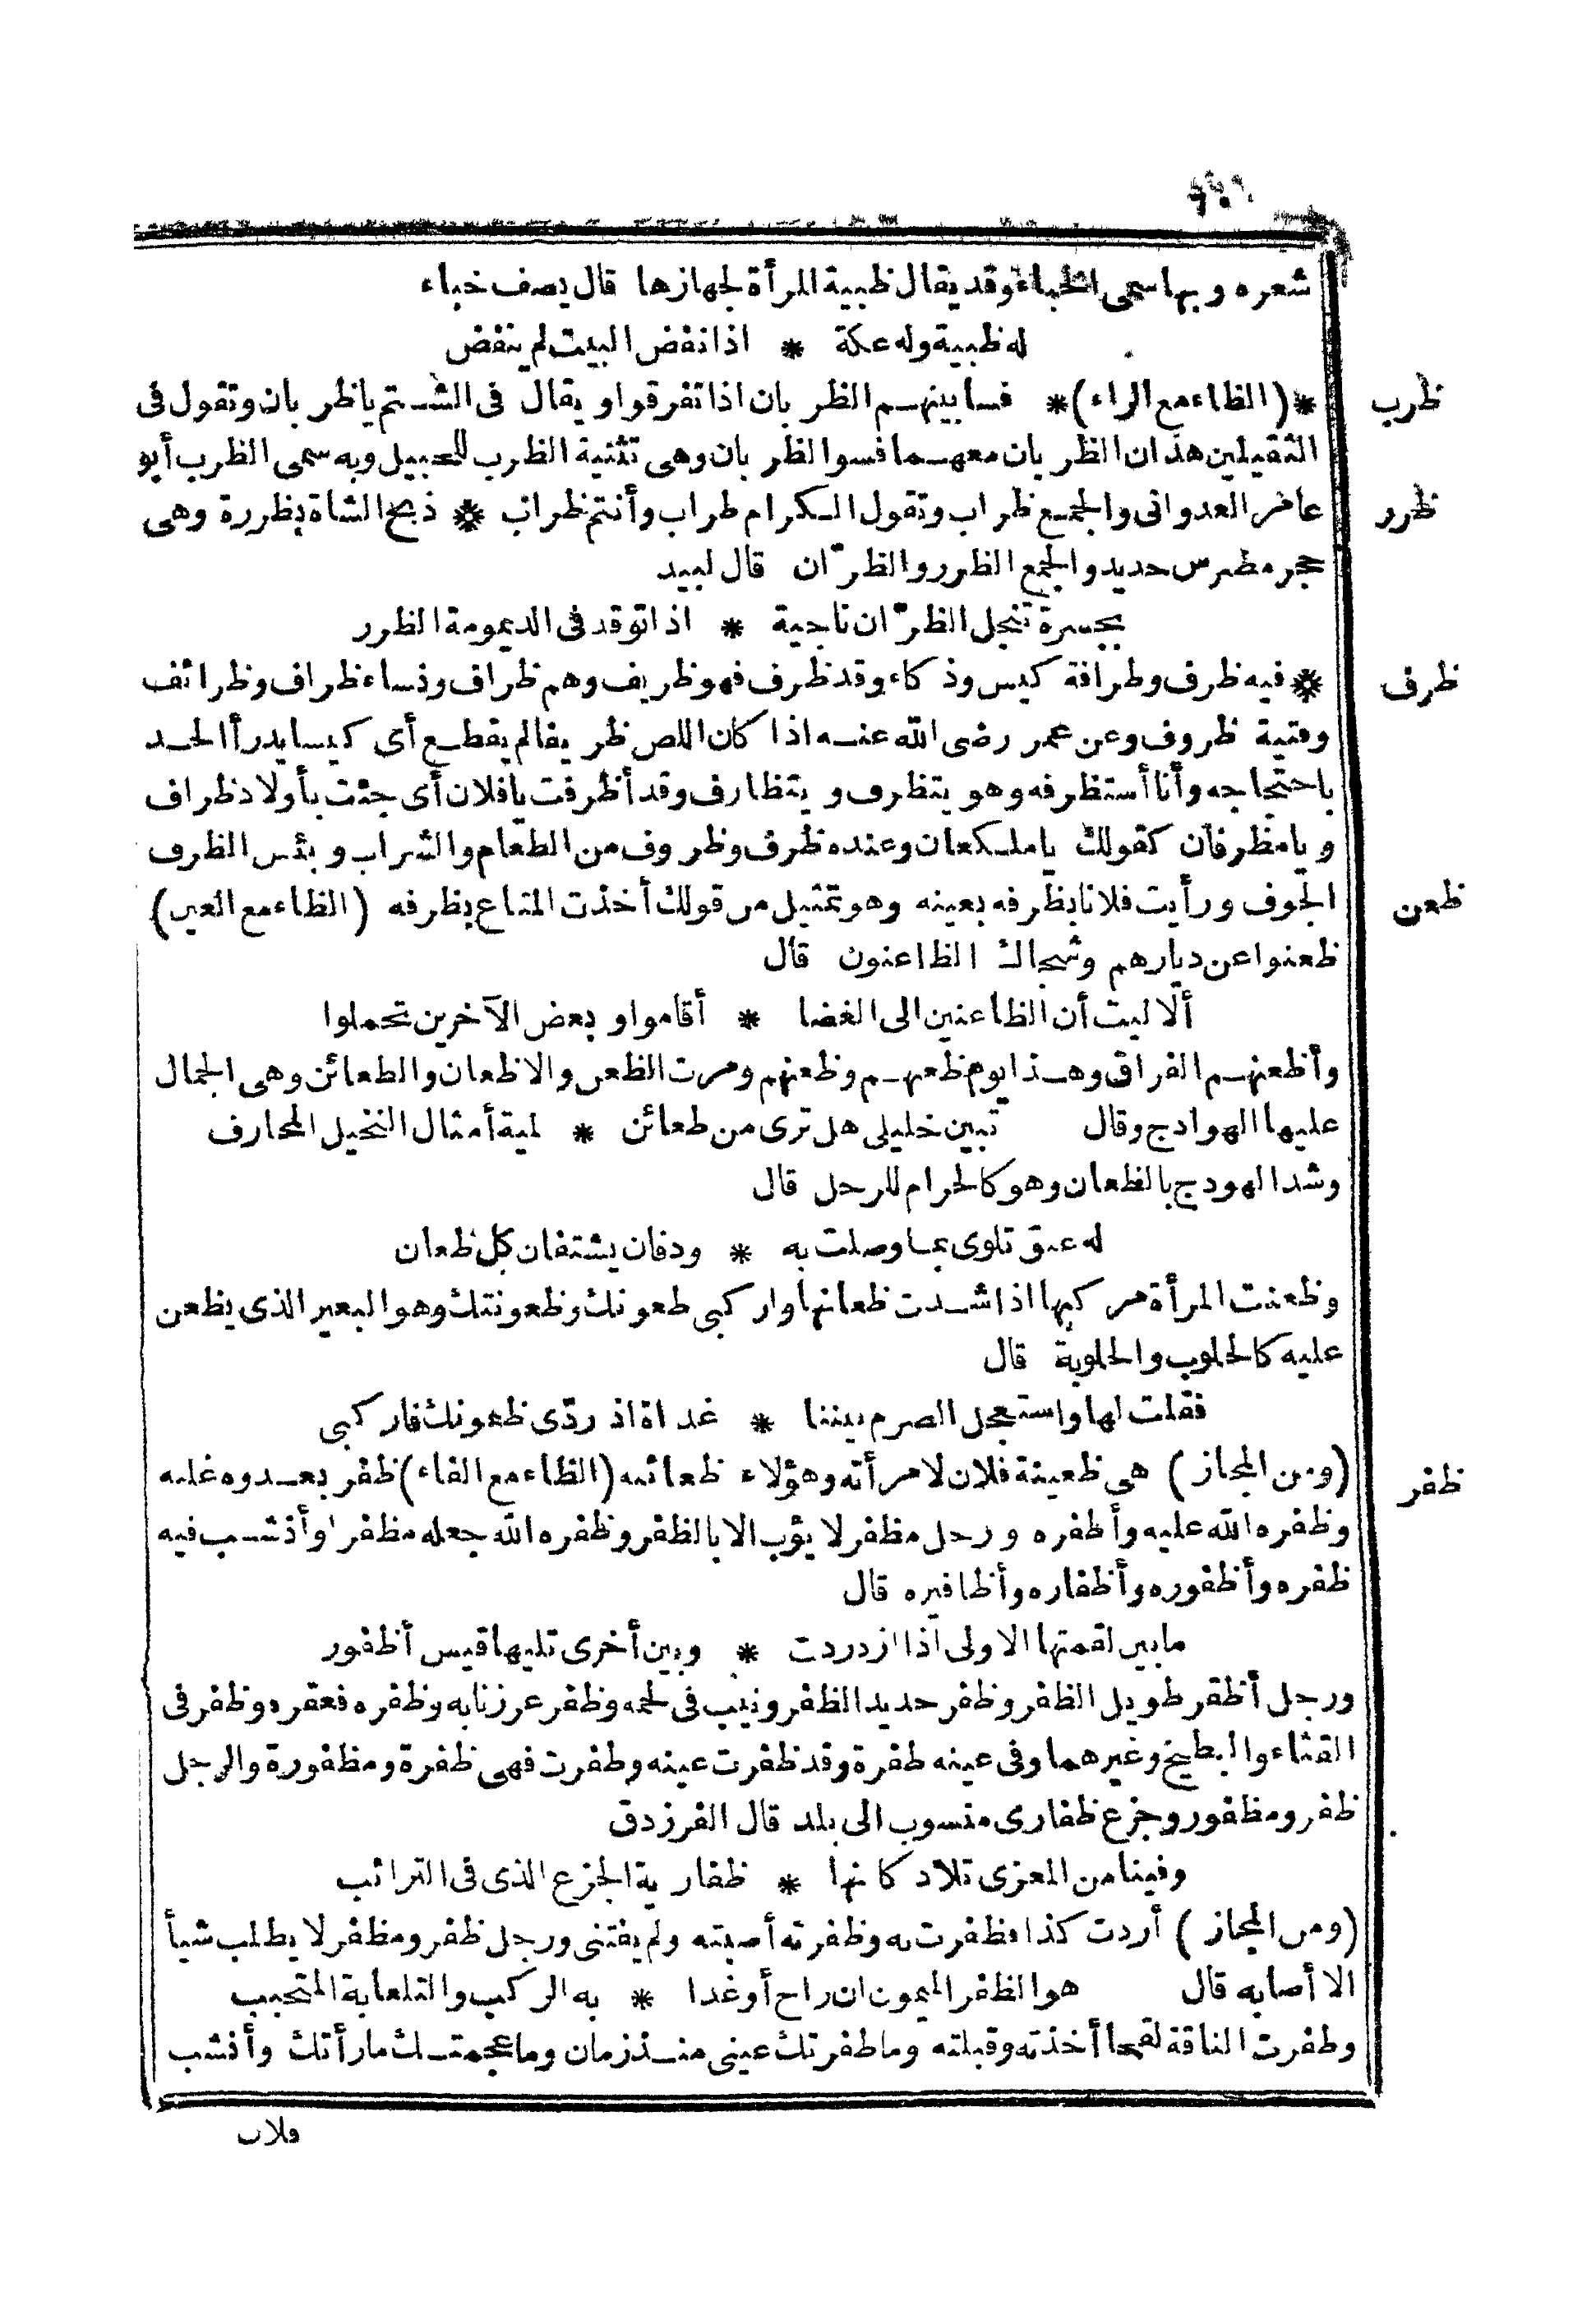 شعره وبها سمى الخباء وقد يقال ظبية المرأة لجهازها قال يصف خباء
له ظبية وله عكة * اذا نفض البيت لم ينفض
ظرب
*(الظاء مع الراء)* فسا بينهم الظربان اذا تفرقوا ويقال فى الشتم يا ظربان وتقول فى
الثقيلين هذان الظربان معهما فسو الظربان وهى تثنية الظرب للجبيل وبه سمى الظرب أبو
ظرر
عامر العدوانى والجمع ظراب وتقول الكرام طراب وأنتم ظراب * ذبح الشاة بظررة وهى
حجر مضرس حديد والجمع الظرر والظرّان قال لبيد
بجسرة تنجل الظرّان ناجية * اذا توقد فى الديمومة الظرر
ظرف
* فيه ظرف وظرافة كيس وذكاء وقد ظرف فهو ظريف وهم ظراف ونساء ظراف وظرائف
وفتية ظروف وعن عمر رضى الله عنه اذا كان اللص ظريفا لم يقطع أى كيسا يدرأ الحد
باحتجاجه وأنا أستظرفه وهو يتظرف ويتظارف وقد أظرفت يا فلان أى جئت بأولاد ظراف
ويا مظرفان كقولك يا ملكعان وعنده ظرف وظروف من الطعام والشراب وبئس الظرف
ظعن
الجوف ورأيت فلانا بظرفه بعينه وهو تمثيل من قولك أخذت المتاع بظرفه (الظاء مع العين)
ظعنوا عن ديارهم وشجاك الظاعنون قال
ألا ليت أن الظاعنين الى الغضا * أقاموا وبعض الآخرين تحملوا
وأظعنهم الفراق وهذا يوم ظعنهم وظعنهم ومرت الظعن والاظعان والظعائن وهى الجمال
عليها الهوادج وقال تبين خليلى هل ترى من ظعائن * لمية أمثال النخيل المخارف
وشد الهودج بالظعان وهو كالحزام للرحل قال
له عنق تلوى بما وصلت به * ودفان يشتفان كل ظعان
وظعنت المرأة مركبها اذا شدت ظعانها واركبى ظعونك وظعونتك وهو البعير الذى يظعن
عليه كالحلوب والحلوبة قال
فقلت لها واستعجل الصرم بيننا * غداة اذ ردّى ظعونك فاركبى
ظفر
(ومن المجاز) هى ظعينة فلان لامرأته وهؤلاء ظعائنه (الظاء مع الفاء) ظفر بعدوه غلبه
وظفره الله عليه وأظفره ورجل مظفر لا يؤب الا بالظفر وظفره الله جعله مظفرا وأنشب فيه
ظفره وأظفوره وأظفاره وأظافيره قال
ما بين لقمتها الاولى اذا ازدردت * وبين أخرى تليها قيس أظفور
ورجل أظفر طويل الظفر وظفر حديد الظفر ونيب فى لحمه وظفر غرز نابه وظفره فعقره وظفر فى
القثاء والبطيخ وغيرهما وفى عينه ظفرة وقد ظفرت عينه وظفرت فهى ظفرة ومظفورة والرجل
ظفر ومظفور وجزع ظفارى منسوب الى بلد قال الفرزدق
وفينا من المعزى تلاد كانها * ظفارية الجزع الذى فى الترائب
(ومن المجاز) أردت كذا فظفرت به وظفرته أصبته ولم يفتنى ورجل ظفر ومظفر لا يطلب شيأ
الا أصابه قال هو الظفر الميمون ان راح أو غدا * به الركب والتلعابة المتحبب
وظفرت الناقة لقحا أخذته وقبلته وما ظفرتك عينى منذ زمان وما عجمتك ما رأتك وأنشب
فلان